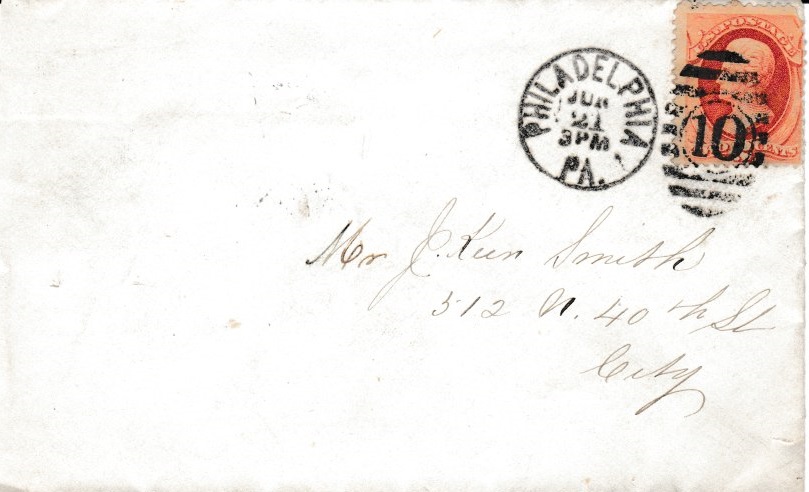 U.S. POSTAGE
PHILADELPHIA
JUN
21
3PM
PA.
10
CENTS
Mr J. Keen Smith
512 N. 40th St
City